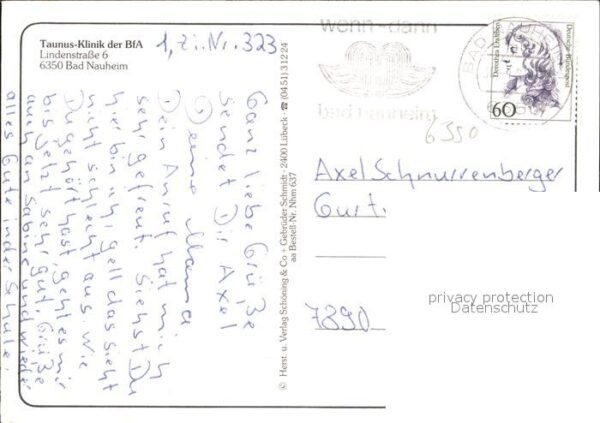 Taunus-Klinik der BfA
Lindenstraße 6
6350 Bad Nauheim
1, Zi. Nr. 323
Ganz liebe Grüße
sendet Dir Axel
Deine Mama
Dein Anruf hat mich
sehr gefreut. Siehst Du
hier bin ich, gell das sieht
nicht schlecht aus. Wie
Du gehört hast, geht es mir
bis jetzt sehr gut, Grüße
auch an Sabine und wieder
alles Gute in der Schule.
© Herst. u. Verlag Schöning & Co + Gebrüder Schmidt · 2400 Lübeck · ☎ (0451) 31224
aa Bestell-Nr. Nhm 637
wenn - dann
bad nauheim
BAD NAUHEIM
Dorothea Erxleben
Deutsche Bundespost
60
6350
Axel Schnurrenberger
Gurt.
7890
privacy protection
Datenschutz